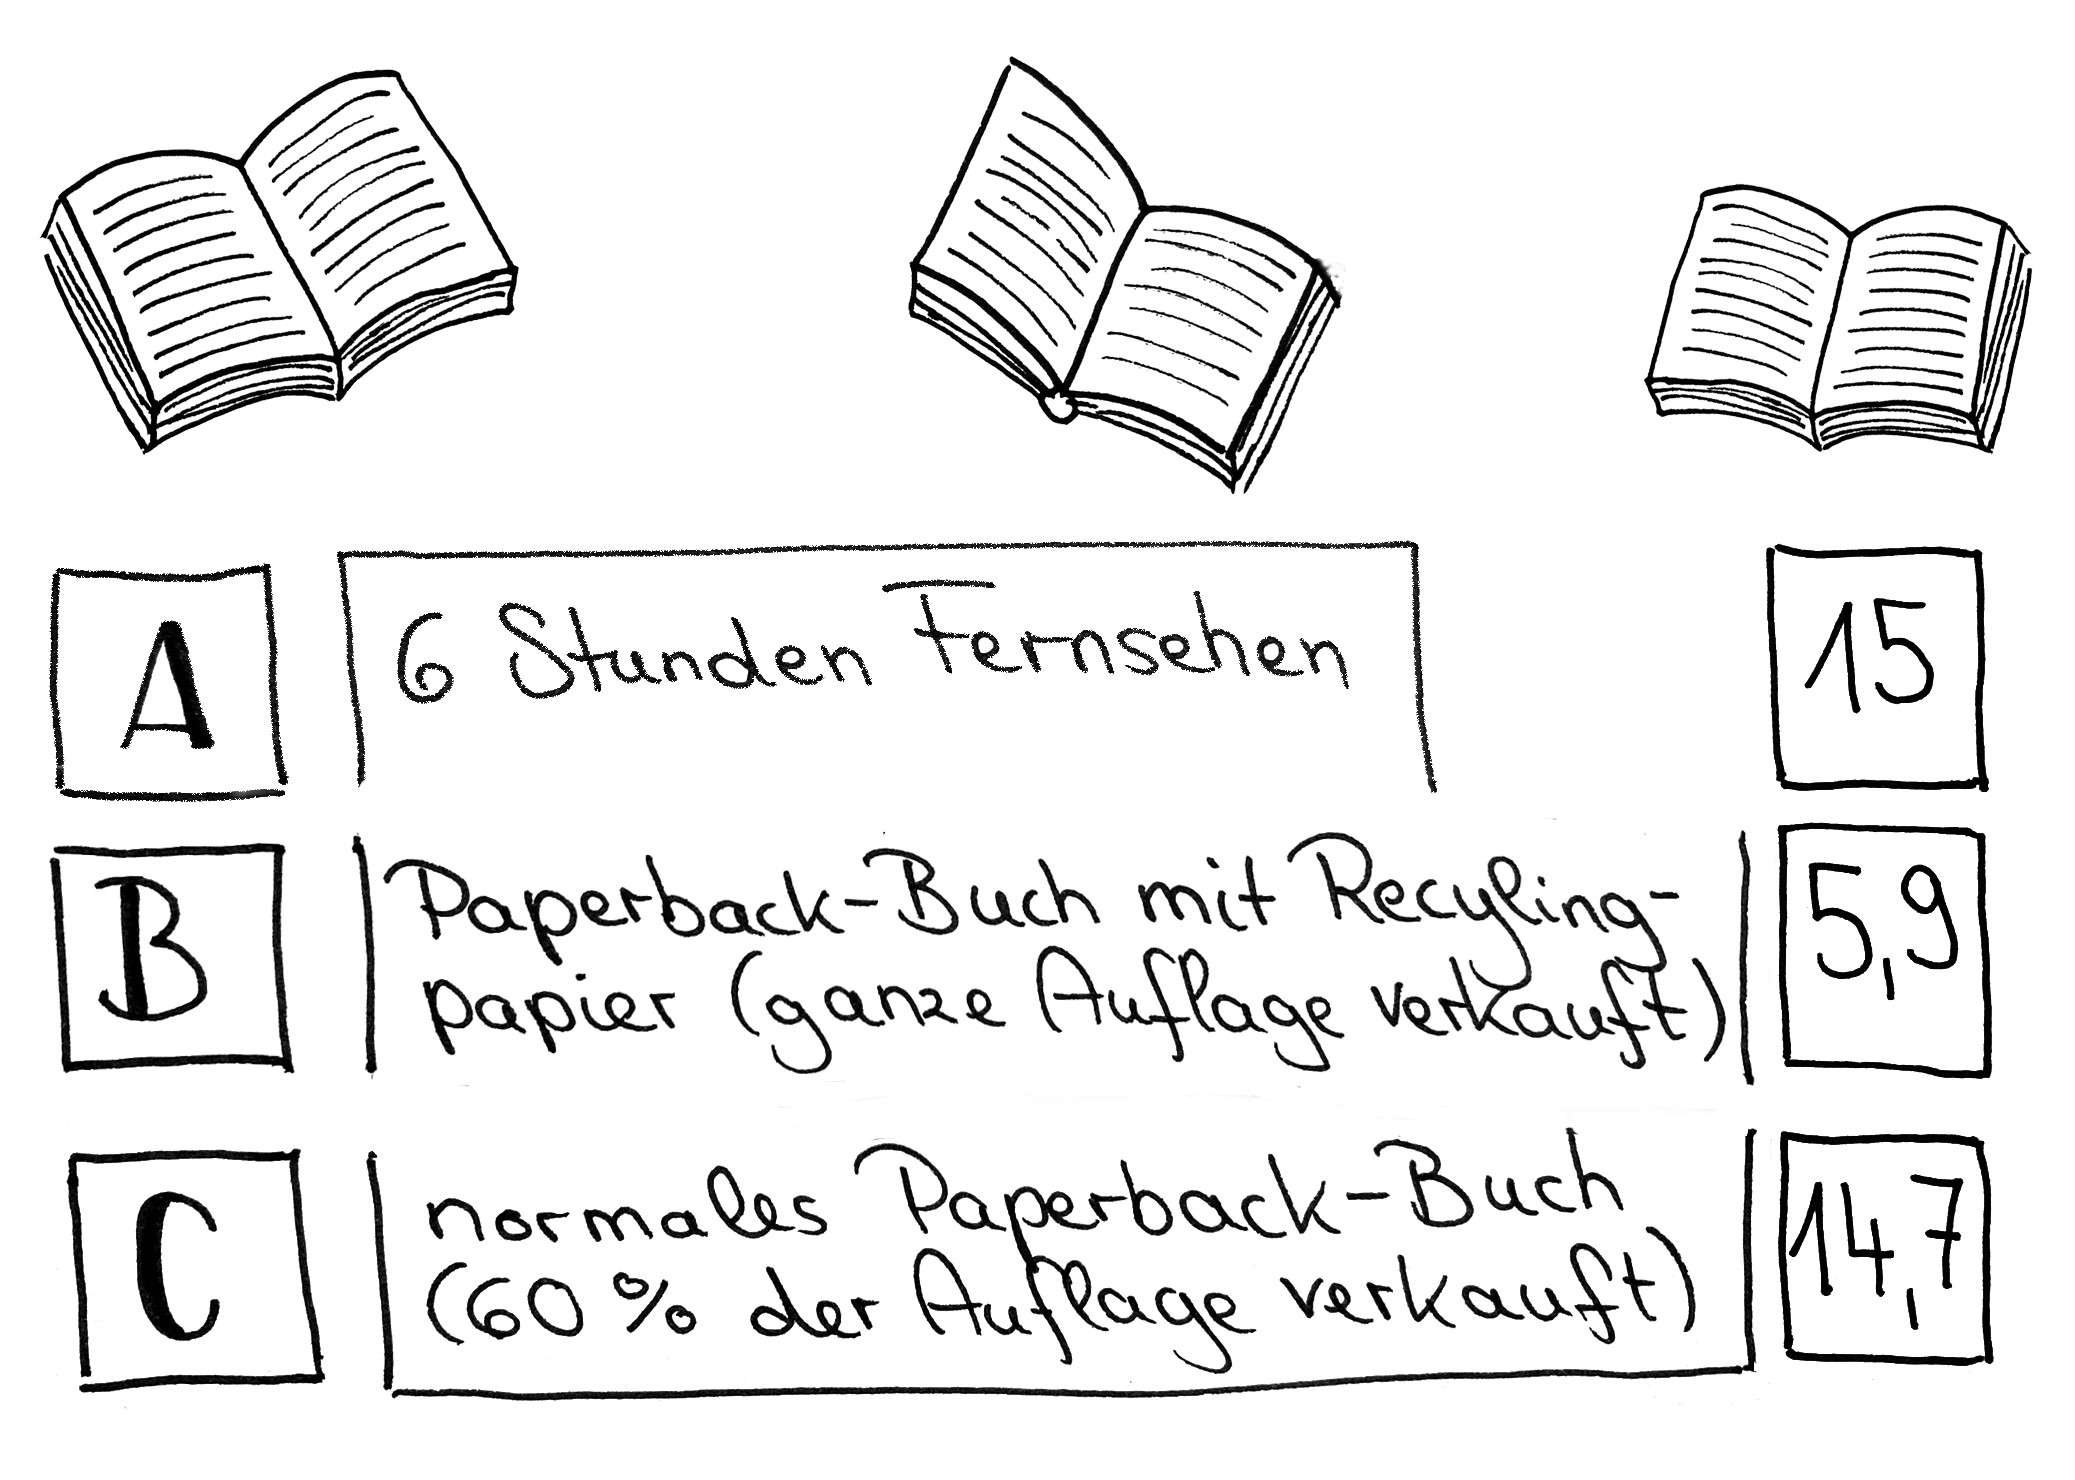 A 6 Stunden Fernsehen 15
B Paperback-Buch mit Recyling- 5,9
papier (ganze Auflage verkauft)
C normales Paperback-Buch 14,7
(60 % der Auflage verkauft)